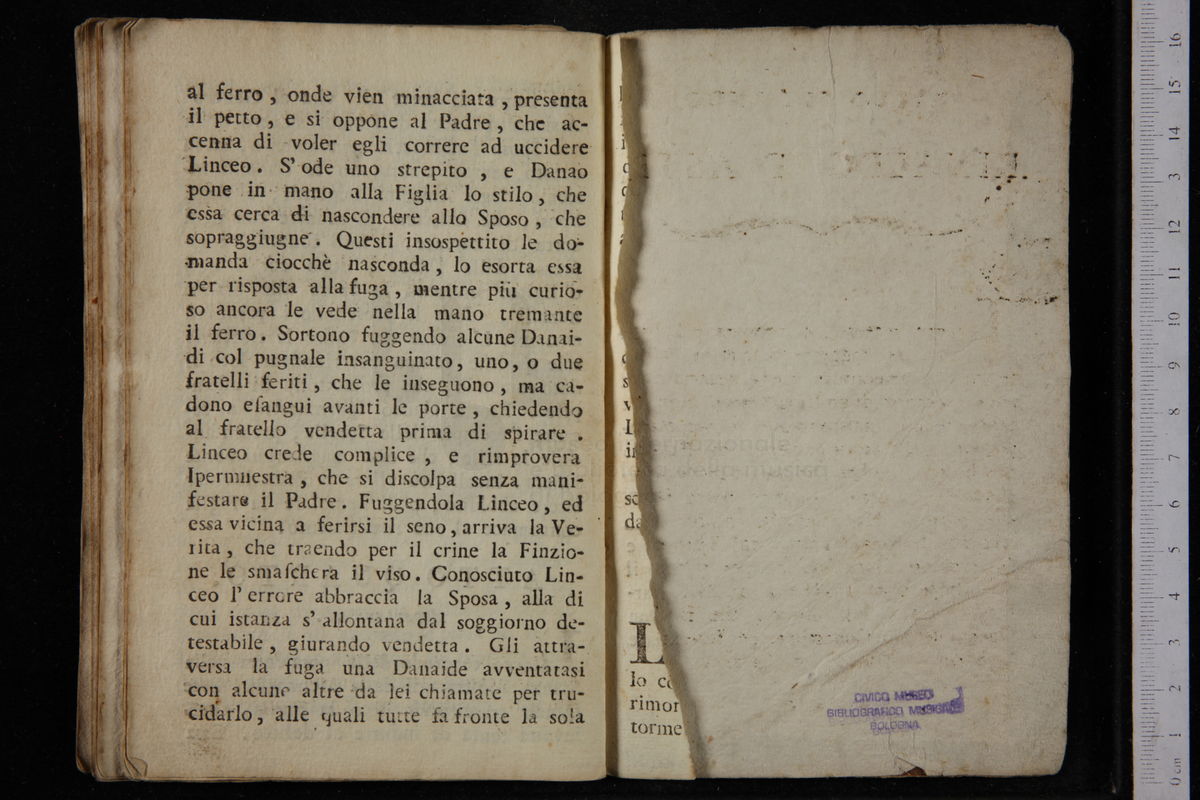 al ferro, onde vien minacciata, presenta
il petto, e si oppone al Padre, che ac-
cenna di voler egli correre ad uccidere
Linceo. S' ode uno strepito, e Danao
pone in mano alla Figlia lo stilo, che
essa cerca di nascondere allo Sposo, che
sopraggiugne. Questi insospettito le do-
manda ciocchè nasconda, lo esorta essa
per risposta alla fuga, mentre più curio-
so ancora le vede nella mano tremante
il ferro. Sortono fuggendo alcune Danai-
di col pugnale insanguinato, uno, o due
fratelli feriti, che le inseguono, ma ca-
dono eſangui avanti le porte, chiedendo
al fratello vendetta prima di spirare.
Linceo crede complice, e rimprovera
Ipermnestra, che si discolpa senza mani-
festare il Padre. Fuggendola Linceo, ed
essa vicina a ferirsi il seno, arriva la Ve-
rita, che traendo per il crine la Finzio-
ne le smaſchera il viso. Conosciuto Lin-
ceo l' errore abbraccia la Sposa, alla di
cui istanza s' allontana dal soggiorno de-
testabile, giurando vendetta. Gli attra-
versa la fuga una Danaide avventatasi
con alcune altre da lei chiamate per tru-
cidarlo, alle quali tutte fa fronte la sola
L
lo
rimor
torme
CIVICO MUSEO
BIBLIOGRAFICO MUSICALE
BOLOGNA
0 cm 1 2 3 4 5 6 7 8 9 10 11 12 3 14 15 16